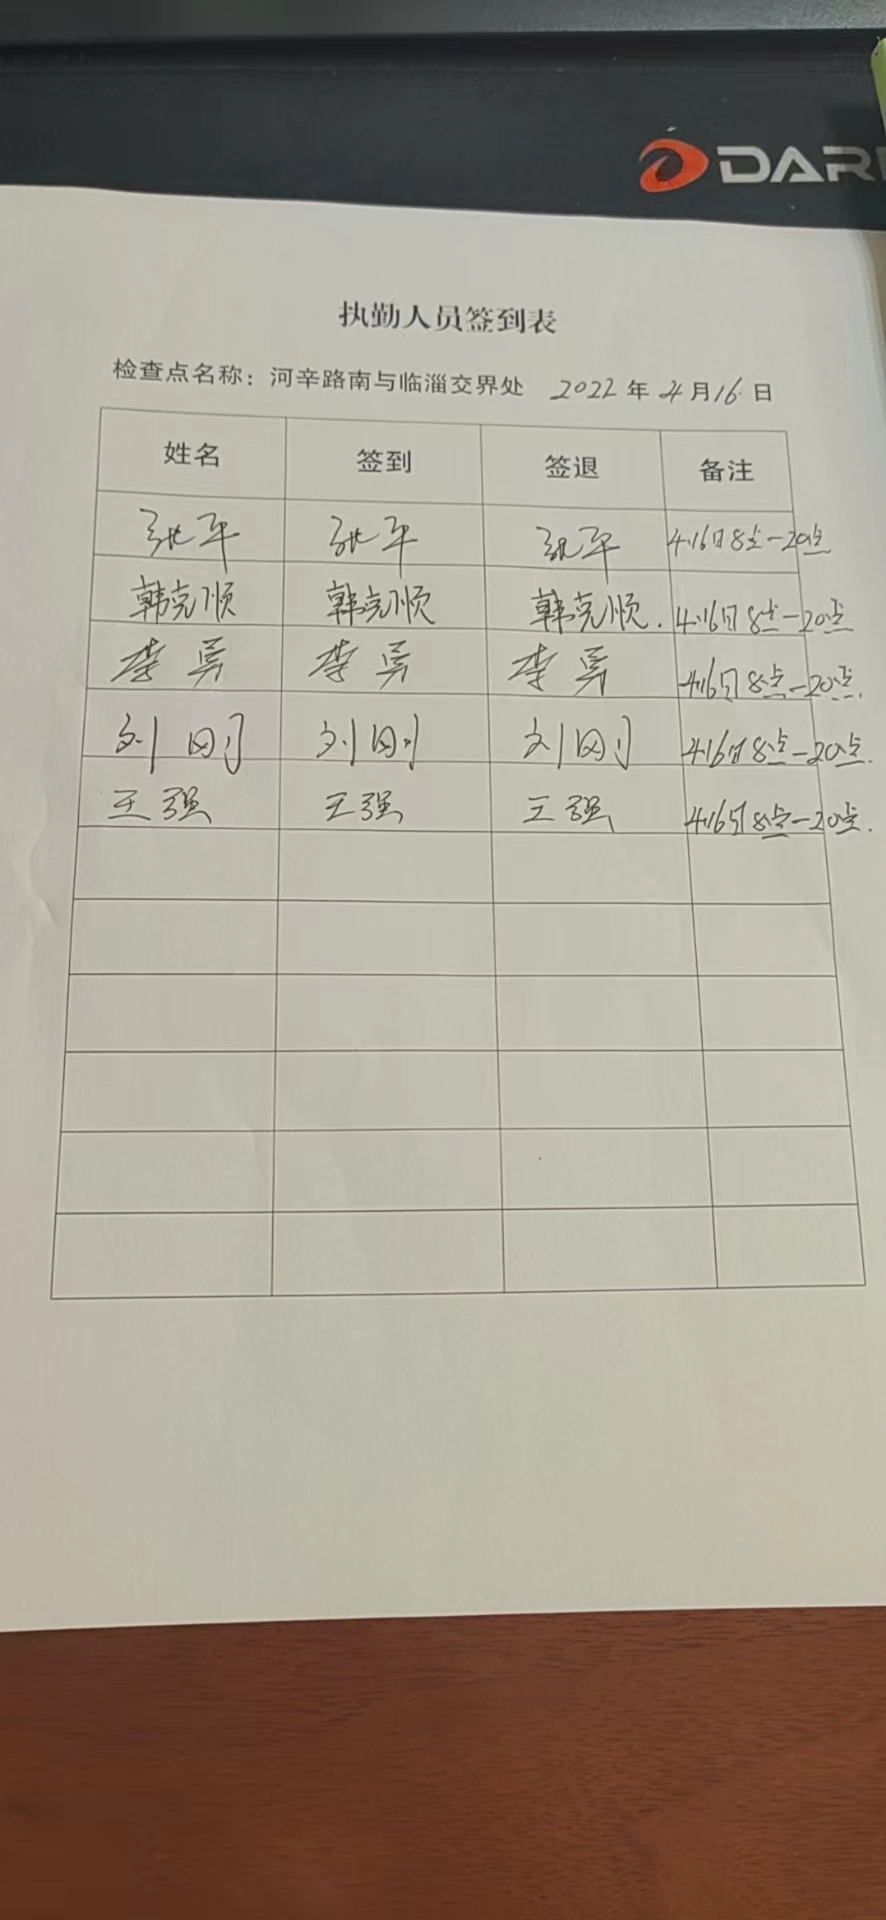 DAR
执勤人员签到表
检查点名称：河辛路南与临淄交界处 2022年4月16日
姓名 签到 签退 备注
张平 张平 张平 4.16日8点-20点
韩克顺 韩克顺 韩克顺. 4.16日8点-20点
李勇 李勇 李勇 4.16日8点-20点.
刘刚 刘刚 刘刚 4.16日8点-20点.
王强 王强 王强 4.16日8点-20点.